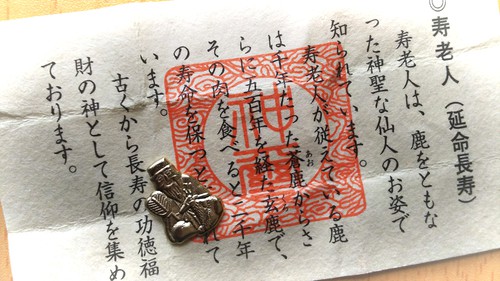 ◎寿老人(延命長寿)
寿老人は、鹿をともな
った神聖な仙人のお姿で
知られています。
寿老人が従えている鹿
は千年たった蒼鹿からさ
あお
らに五百年を経た玄鹿で、
その肉を食べると二千年
の寿命を保つと
れて
います。
古くから長寿の功徳福
財の神として信仰を集め
ております。